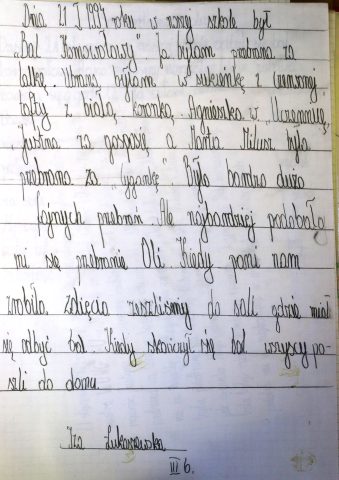 Dnia 21 I 1994 roku w mojej szkole był
„Bal Karnawałowy" Ja byłam przebrana za
lalkę. Ubrana byłam w sukienkę z czerwonej
tafty z białą koronką, Agnieszka w „Uczennicę,"
Justina za gosposię a Marta Miłusz była
przebrana za „cygankę". Było bardzo dużo
fajnych przebrań. Ale najbardziej podobało
mi się przebranie Oli. Kiedy pani nam
zrobiła zdięcia zeszliśmy do sali gdzie miał
się odbyć bal. Kiedy skończył się bal wszyscy po-
szli do domu.
Iza Łukaszewska
III b.